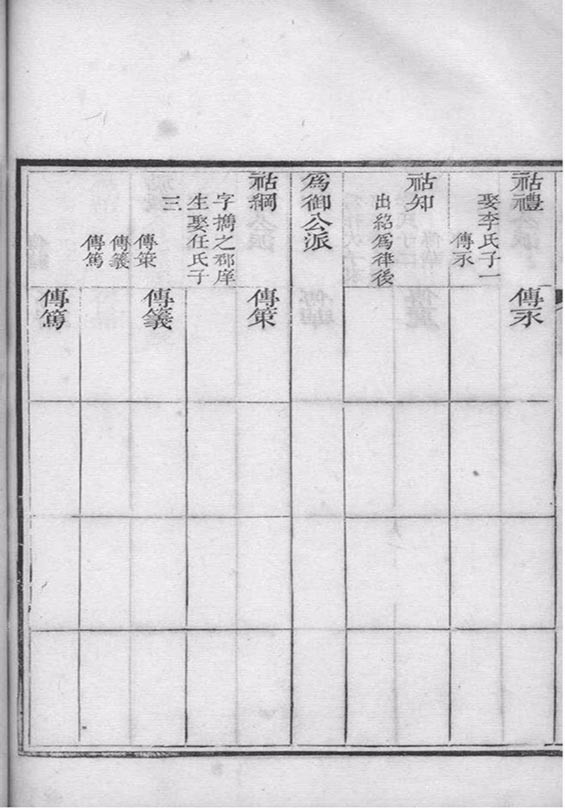 祜禮
娶李氏子一
傳永
傳永
祜知
出紹爲律後
爲御公派
祜綱
字搢之郡庠
生娶任氏子
三
傳策
傳義
傳篤
傳策
傳義
傳篤